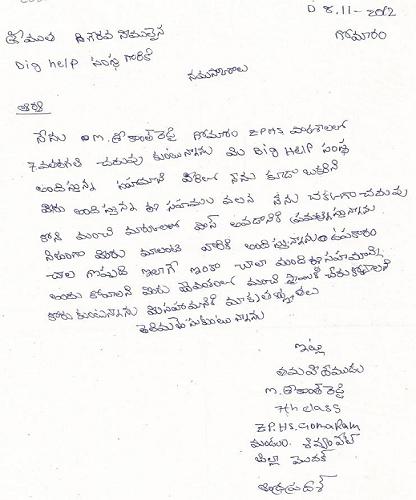 D 8.11-2012
గోమారం
శ్రీమతి గౌరవ నీయులైన
Big help సంస్థ గారికి
నమస్కారాలు
ఆర్యా
నేను M. శ్రీకాంత్ రెడ్డి గోమారం ZPHS పాఠశాలలో
7వతరగతి చదువు కుంటున్నాను మీ Big HELP సంస్థ
అందిస్తున్న సహాయానికి నేను కూడా ఒకరిని
మీరు అందిస్తున్న ఈ సహాయం వలన నేను చక్కగా చదువు
కోని మంచి మార్కులలో పాస్ అవడానికి ప్రయత్నిస్తున్నాను
మీరు మాలంటి వారికి అందిస్తున్న ఉపకారం
చాల గొప్పది ఇలాగే ఇంకా చాలా మంది ఈ సహాయాన్ని
అందు కోవాలని మీరు మంచి స్థాయికి చేరుకోవాలని
కోరు కుంటున్నాను మీసహాయానికి మా కృతజ్ఞతలు
తెలియచేసుకుంటున్నాను
ఇట్లు
తమ విధేయుడు
M. శ్రీకాంత్ రెడ్డి
7th class
Z.P.H.S. Gomaram
మండలం. శివ్వంపేట్
జిల్లా మెదక్
ఆంధ్రప్రదేశ్